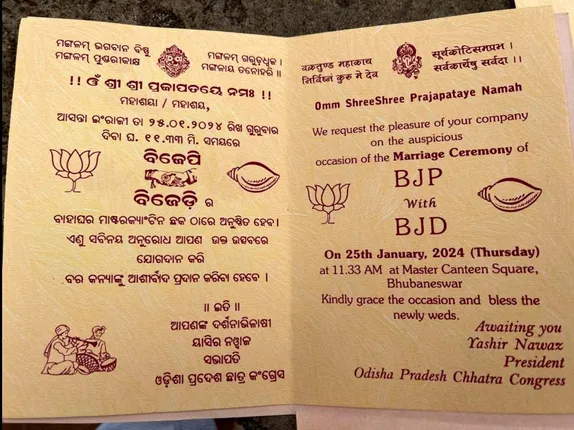 ମଙ୍ଗଳମ୍ ଭଗବାନ ବିଷ୍ଣୁ
ମଙ୍ଗଳମ୍ ପୁଣ୍ଡରୀକାକ୍ଷ
ମଙ୍ଗଳମ୍ ଗରୁଡ଼ଧ୍ୱଜ ।
ମଙ୍ଗଳାୟ ତନୋହରି ॥
!! ଓଁ ଶ୍ରୀ ଶ୍ରୀ ପ୍ରଜାପତୟେ ନମଃ !!
ମହାଶୟା / ମହାଶୟ,
ଆସନ୍ତା ଇଂରାଜୀ ତା ୨୫.୦୧.୨୦୨୪ ରିଖ ଗୁରୁବାର
ଦିବା ଘ. ୧୧.୩୩ ମି. ସମୟରେ
ବିଜେପି
ବିଜେଡ଼ି ର
ବାହାଘର ମାଷ୍ଟରକ୍ୟାଂଟିନ ଛକ ଠାରେ ଅନୁଷ୍ଠିତ ହେବ।
ଏଣୁ ସବିନୟ ଅନୁରୋଧ ଆପଣ ଉକ୍ତ ଉତ୍ସବରେ
ଯୋଗଦାନ କରି
ବର କନ୍ୟାଙ୍କୁ ଆଶୀର୍ବାଦ ପ୍ରଦାନ କରିବା ହେବେ ।
॥ ଇତି ॥
ଆପଣଙ୍କ ଦର୍ଶନାଭିଳାଷୀ
ୟାସିର ନୱାଜ
ସଭାପତି
ଓଡ଼ିଶା ପ୍ରଦେଶ ଛାତ୍ର କଂଗ୍ରେସ
ବକ୍ରତୁଣ୍ଡ ମହାକାୟ
ନିର୍ବିଘ୍ନଂ କୁରୁ ମେ ଦେବ
ସୂର୍ଯ୍ୟକୋଟିସମପ୍ରଭ ।
ସର୍ବକାର୍ଯ୍ୟେଷୁ ସର୍ବଦା ॥
Omm ShreeShree Prajapataye Namah
We request the pleasure of your company
on the auspicious
occasion of the Marriage Ceremony of
BJP
With
BJD
On 25th January, 2024 (Thursday)
at 11.33 AM at Master Canteen Square,
Bhubaneswar
Kindly grace the occasion and bless the
newly weds.
Awaiting you
Yashir Nawaz
President
Odisha Pradesh Chhatra Congress